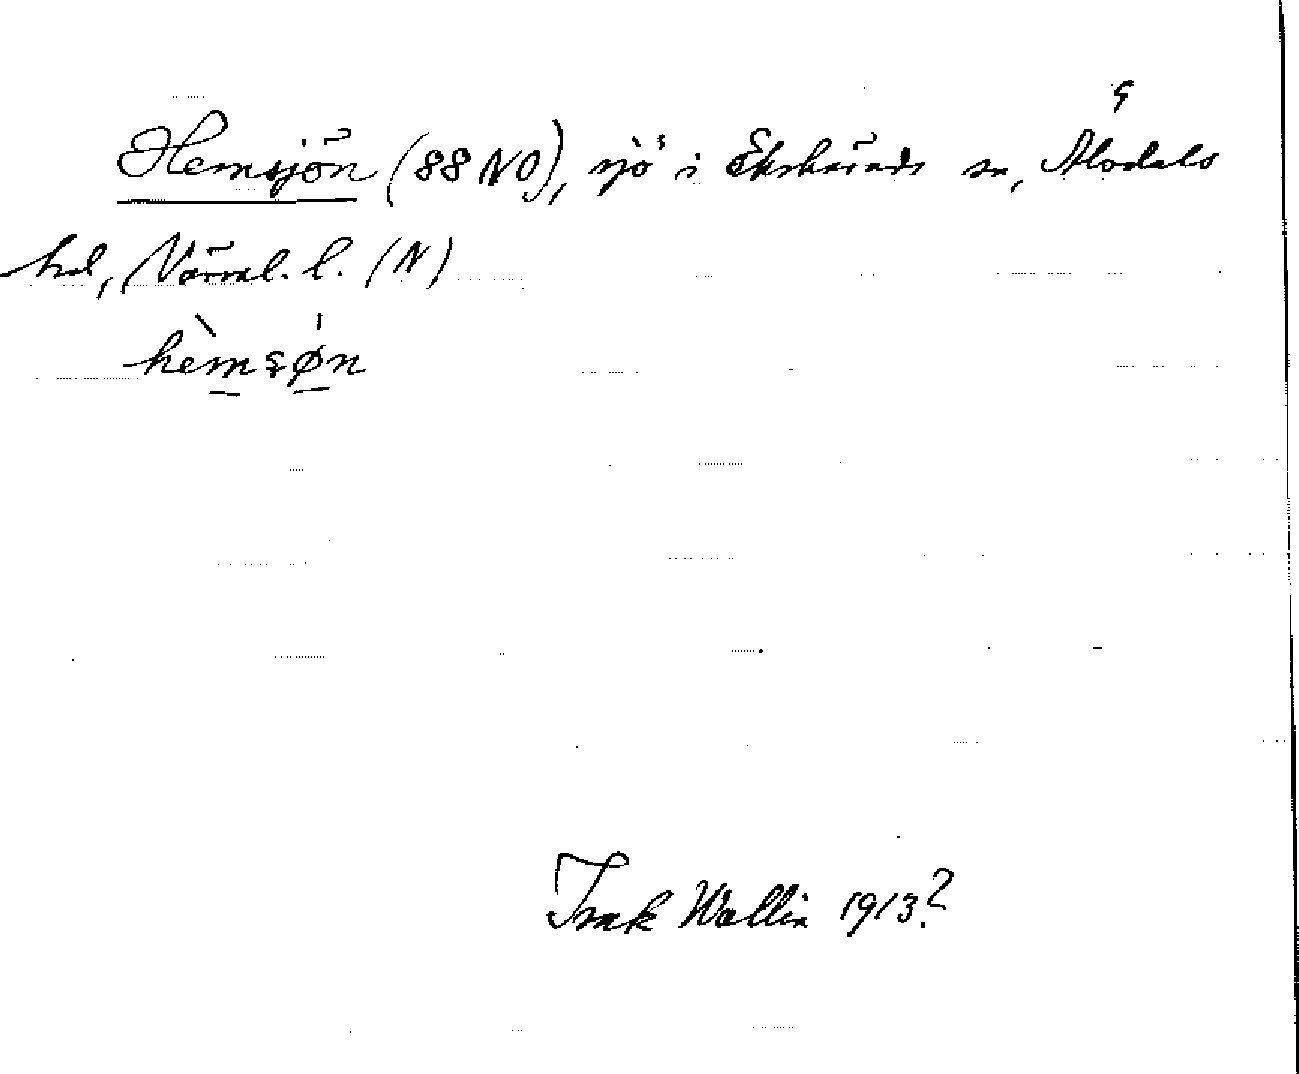 Hemsjön (88 NO), sjö i Ekshärads sn, Älvdals
hd, Värml. l. (N)
hèmsøn
Isak Wallin 1913?